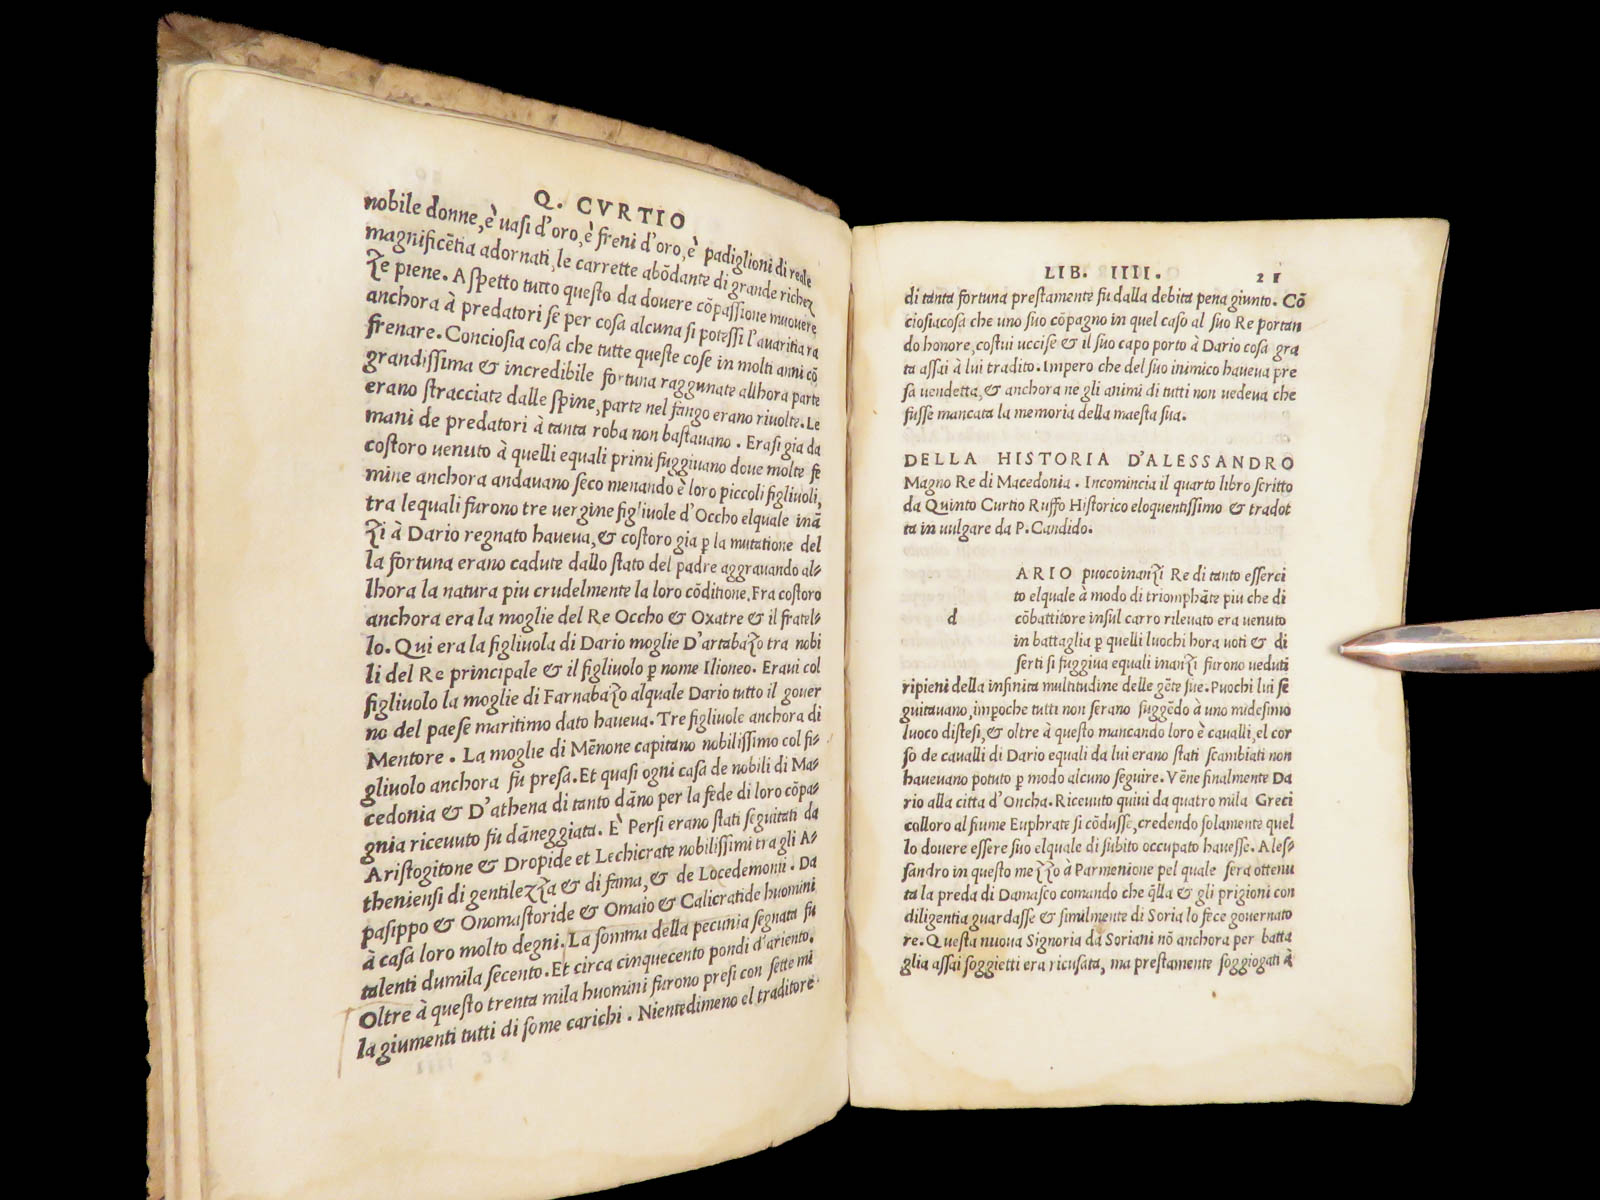 Q. CVRTIO
nobile donne, è uasi d'oro, è freni d'oro, è padiglioni di reale
magnificētia adornati, le carrette abōdante di grande richez
ze piene. Aspetto tutto questo da douere cōpassione muouere
anchora à predatori se per cosa alcuna si potessi l'auaritia ra
frenare. Conciosia cosa che tutte queste cose in molti anni cō
grandissima & incredibile fortuna raggunate allhora parte
erano stracciate dalle spine, parte nel fango erano riuolte. Le
mani de predatori à tanta roba non bastauano. Erasi gia da
costoro uenuto à quelli equali primi fuggiuano doue molte fe
mine anchora andauano seco menando è loro piccoli figliuoli,
tra lequali furono tre uergine figliuole d'Occho elquale inā
zi à Dario regnato haueua, & costoro gia ꝑ la mutatione del
la fortuna erano cadute dallo stato del padre aggrauando al-
lhora la natura piu crudelmente la loro cōditione. Fra costoro
anchora era la moglie del Re Occho & Oxatre & il fratel-
lo. Qui era la figliuola di Dario moglie D'artabazo tra nobi
li del Re principale & il figliuolo ꝑ nome Ilioneo. Eraui col
figliuolo la moglie di Farnabazo alquale Dario tutto il gouer
no del paese maritimo dato haueua. Tre figliuole anchora di
Mentore. La moglie di Mēnone capitano nobilissimo col fi-
gliuolo anchora fu presa. Et quasi ogni casa de nobili di Ma-
cedonia & D'athena di tanto dāno per la fede di loro cōpa-
gnia riceuuto fu dāneggiata. È Persi erano stati seguitati da
Aristogitone & Dropide et Lechicrate nobilissimi tra gli A-
theniensi di gentilezza & di fama, & de Locedemonii. Da
pasippo & Onomastoride & Omaio & Calicratide huomini
à casa loro molto degni. La somma della pecunia segnata fu
talenti dumila secento. Et circa cinquecento pondi d'ariento.
Oltre à questo trenta mila huomini furono presi con sette mi
la giumenti tutti di some carichi. Nientedimeno el traditore
LIB. IIII. 21
di tanta fortuna prestamente fu dalla debita pena giunto. Cō
ciosiacosa che uno suo cōpagno in quel caso al suo Re portan
do honore, costui uccise & il suo capo porto à Dario cosa gra
ta assai à lui tradito. Impero che del suo inimico haueua pre
sa uendetta, & anchora ne gli animi di tutti non uedeua che
fusse mancata la memoria della maesta sua.
DELLA HISTORIA D'ALESSANDRO
Magno Re di Macedonia. Incomincia il quarto libro scritto
da Quinto Curtio Ruffo Historico eloquentissimo & tradot
ta in uulgare da P. Candido.
d
ARIO puocoinanzi Re di tanto esserci
to elquale à modo di triomphāte piu che di
cōbattitore insul carro rileuato era uenuto
in battaglia ꝑ quelli luochi hora uoti & di
serti si fuggiua equali inanzi furono ueduti
ripieni della infinita multitudine delle gēte sue. Puochi lui se
guitauano, imꝑoche tutti non serano fuggēdo à uno midesimo
luoco distesi, & oltre à questo mancando loro è caualli, el cor
so de caualli di Dario equali da lui erano stati scambiati non
haueuano potuto ꝑ modo alcuno seguire. Vēne finalmente Da
rio alla citta d'Oncha. Riceuuto quiui da quatro mila Greci
colloro al fiume Euphrate si cōdusse, credendo solamente quel
lo douere essere suo elquale di subito occupato hauesse. Ales-
sandro in questo mezzo à Parmenione pel quale sera ottenu
ta la preda di Damasco comando che q̄lla & gli prigioni con
diligentia guardasse & similmente di Soria lo fece gouernato
re. Questa nuoua Signoria da Soriani nō anchora per batta
glia assai soggietti era ricusata, ma prestamente soggiogati à